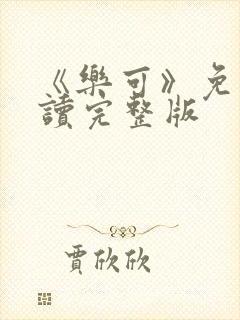 《樂可》免
讀完整版
賈欣欣